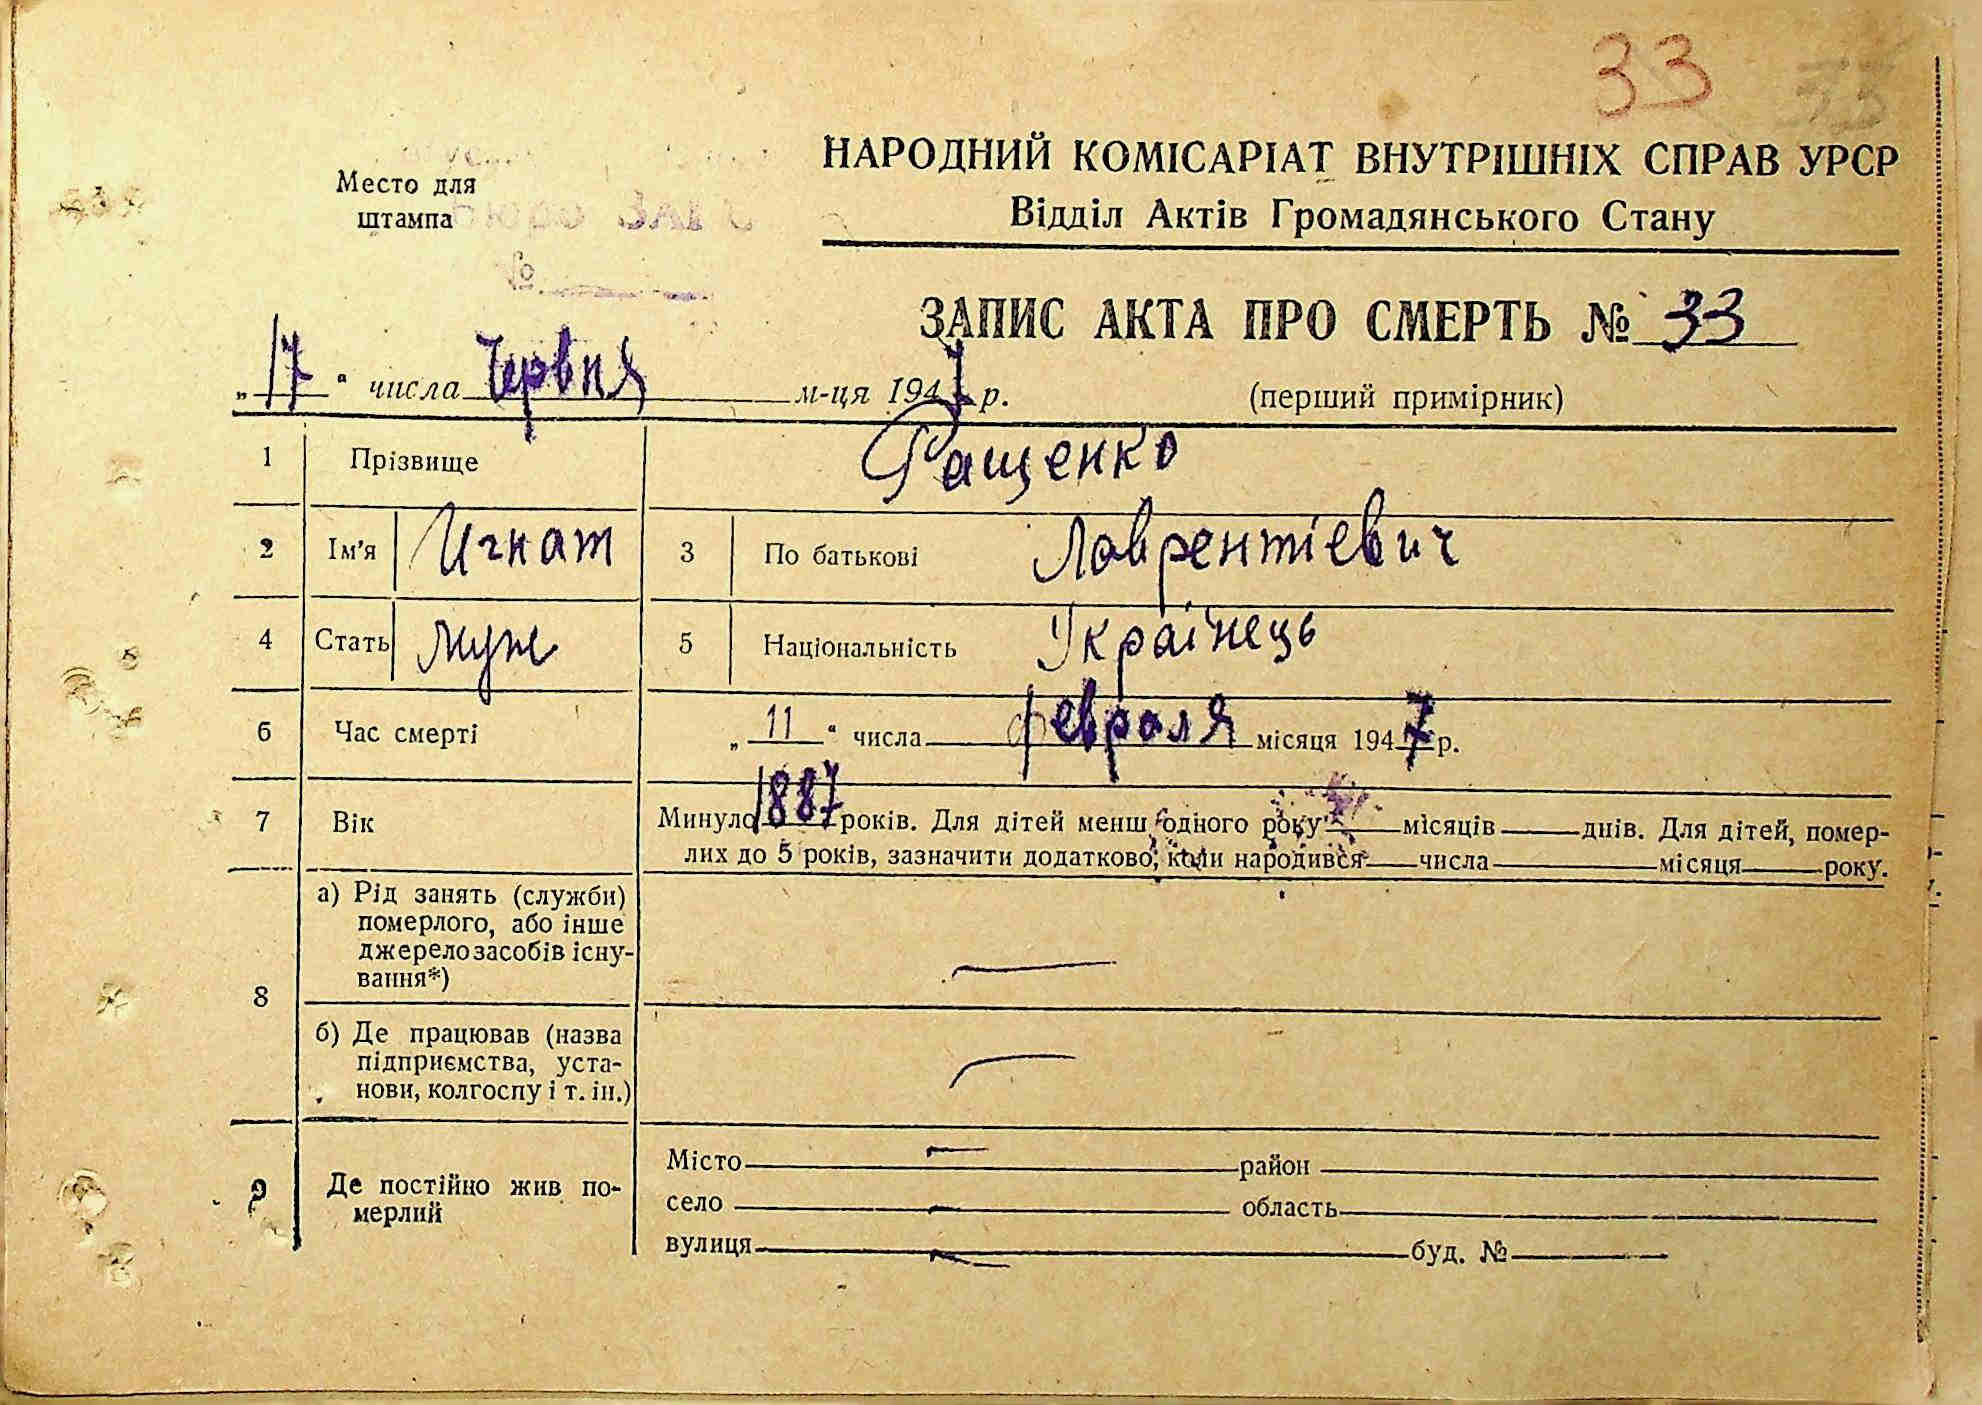 33 33
НАРОДНИЙ КОМІСАРІАТ ВНУТРІШНІХ СПРАВ УРСР
Место для
штампа
Відділ Актів Громадянського Стану
№
ЗАПИС АКТА ПРО СМЕРТЬ № 33
„17“ числа Червня м-ця 1947 р.
(перший примірник)
1 Прізвище Ращенко
2 Ім'я Игнат 3 По батькові Лаврентіевич
4 Стать муж 5 Національність Українець
6 Час смерті „11“ числа февраля місяця 1947 р.
7 Вік Минуло 1887 років. Для дітей менш одного року місяців днів. Для дітей, помер-
лих до 5 років, зазначити додатково, коли народився числа місяця року.
8 а) Рід занять (служби)
померлого, або інше
джерело засобів існу-
вання*) —
б) Де працював (назва
підприємства, уста-
нови, колгоспу і т. ін.) —
9 Де постійно жив по-
мерлий
Місто — район
село — область
вулиця — буд. №